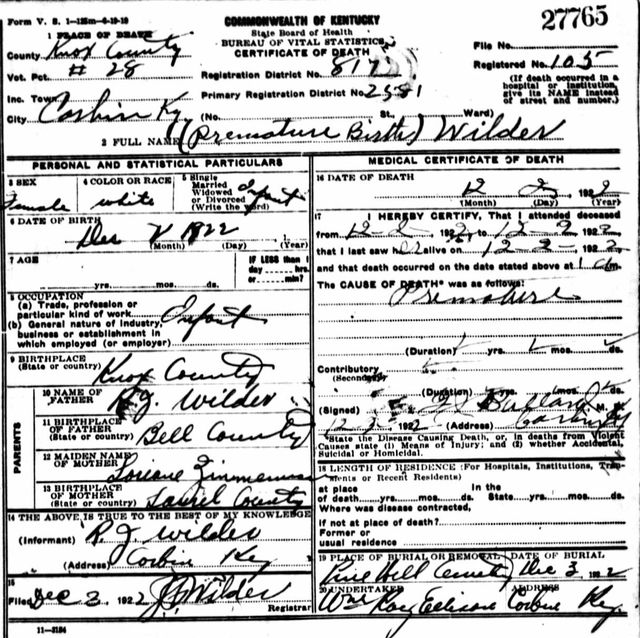 Form V. S. 1-125m-6-19-19
27765
COMMONWEALTH OF KENTUCKY
State Board of Health
BUREAU OF VITAL STATISTICS
CERTIFICATE OF DEATH
1 PLACE OF DEATH
County Knox County
Vot. Pct. # 28
Inc. Town
City Corbin Ky
File No.
Registered No. 105
Registration District No. 817
Primary Registration District No. 2581
(If death occurred in a hospital or institution, give its NAME instead of street and number.)
(No. St., Ward)
2 FULL NAME (Premature Birth) Wilder
PERSONAL AND STATISTICAL PARTICULARS
3 SEX
Female
4 COLOR OR RACE
white
5 Single
Married
Widowed
or Divorced
(Write the word)
Infant
6 DATE OF BIRTH
Dec 2 1922
(Month) (Day) (Year)
7 AGE
yrs. mos. ds.
IF LESS than 1
day hrs.
or min.?
8 OCCUPATION
(a) Trade, profession or
particular kind of work
(b) General nature of industry,
business or establishment in
which employed (or employer)
Infant
9 BIRTHPLACE
(State or country)
Knox County
PARENTS
10 NAME OF
FATHER
R. J. Wilder
11 BIRTHPLACE
OF FATHER
(State or country)
Bell County
12 MAIDEN NAME
OF MOTHER
Zimmerman
13 BIRTHPLACE
OF MOTHER
(State or country)
Laurel County
14 THE ABOVE IS TRUE TO THE BEST OF MY KNOWLEDGE
(Informant) R. J. Wilder
(Address) Corbin Ky
15
Filed Dec 3 1922 Wilder
Registrar
11-3184
MEDICAL CERTIFICATE OF DEATH
16 DATE OF DEATH
12 2 1922
(Month) (Day) (Year)
17 I HEREBY CERTIFY, That I attended deceased
from 12-2- 1922 to 12-2 1922
that I last saw alive on 12-2- 1922
and that death occurred on the date stated above at 1 m.
The CAUSE OF DEATH* was as follows:
Premature
(Duration) yrs. mos. ds.
Contributory
(Secondary)
(Duration) yrs. mos. ds.
(Signed) Ballard M.
12 2 1922 (Address) Corbin Ky
*State the Disease Causing Death, or, in deaths from Violent
Causes state (1) Means of Injury; and (2) whether Accidental,
Suicidal or Homicidal.
18 LENGTH OF RESIDENCE (For Hospitals, Institutions, Tran-
sients or Recent Residents)
At place In the
of death yrs. mos. ds. State yrs. mos. ds.
Where was disease contracted,
if not at place of death?
Former or
usual residence
19 PLACE OF BURIAL OR REMOVAL DATE OF BURIAL
Pine Hill Cemetery Dec 3 1922
20 UNDERTAKER ADDRESS
Wm Ray Ellison Corbin Ky.